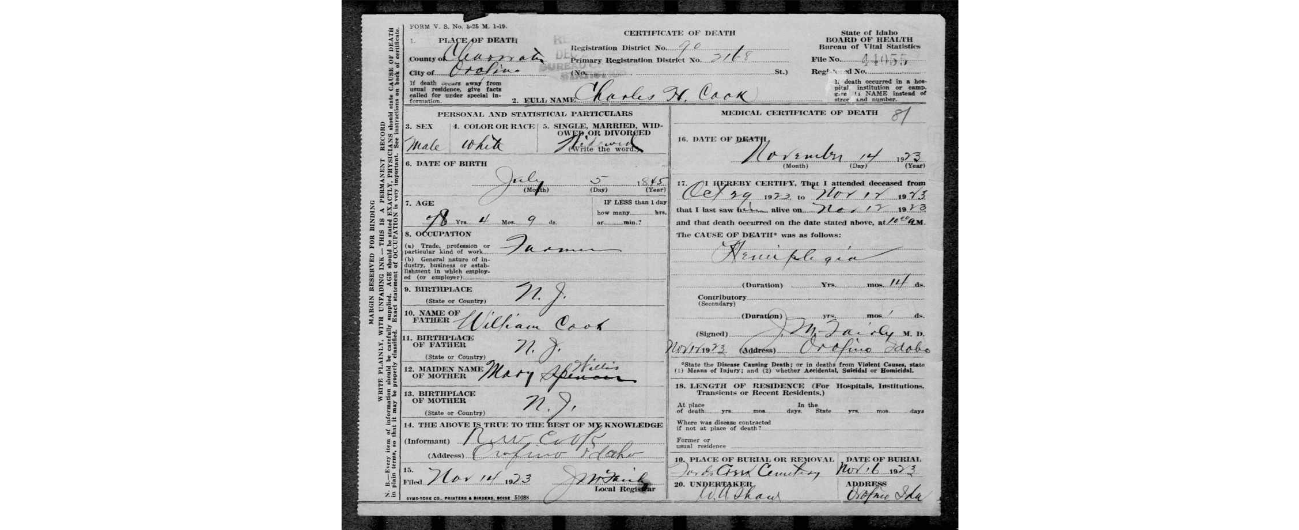 FORM V. S. No. 1-25 M. 1-19.
CERTIFICATE OF DEATH
State of Idaho
BOARD OF HEALTH
Bureau of Vital Statistics
1. PLACE OF DEATH
County of Clearwater
City of Orofino
If death occurs away from usual residence, give facts called for under special information.
Registration District No. 90
Primary Registration District No. 2168
(No. St.)
File No. 44055
Registered No.
death occurred in a hospital institution or camp, give its NAME instead of street and number.
2. FULL NAME Charles H. Cook
PERSONAL AND STATISTICAL PARTICULARS
3. SEX
Male
4. COLOR OR RACE
White
5. SINGLE, MARRIED, WIDOWED, OR DIVORCED
(Write the word.)
6. DATE OF BIRTH
July 5 1845
(Month) (Day) (Year)
7. AGE
78 Yrs. 4 Mos. 9 ds.
IF LESS than 1 day
how many hrs.
or min.?
8. OCCUPATION
(a) Trade, profession or particular kind of work
Farmer
(b) General nature of industry, business or establishment in which employed (or employer)
9. BIRTHPLACE
(State or Country)
N. J.
10. NAME OF FATHER
William Cook
11. BIRTHPLACE OF FATHER
(State or Country)
N. J.
12. MAIDEN NAME OF MOTHER
Mary Spencer Willis
13. BIRTHPLACE OF MOTHER
(State or Country)
N. J.
14. THE ABOVE IS TRUE TO THE BEST OF MY KNOWLEDGE
(Informant) N.W. Cook
(Address) Orofino Idaho
15.
Filed Nov 14 1923 J M Fairly
Local Registrar
SYMS-YORK CO., PRINTERS & BINDERS, BOISE
MEDICAL CERTIFICATE OF DEATH 81
16. DATE OF DEATH
November 14 1923
(Month) (Day) (Year)
17. I HEREBY CERTIFY, That I attended deceased from
Oct 29 1923 to Nov 12 1923
that I last saw him alive on Nov 12 1923
and that death occurred on the date stated above, at M.
The CAUSE OF DEATH* was as follows:
Hemiplegia
(Duration) Yrs. mos. 14 ds.
Contributory
(Secondary)
(Duration) Yrs. mos. ds.
(Signed) J. M. Fairly M. D.
Nov 1923 (Address) Orofino Idaho
*State the Disease Causing Death; or in deaths from Violent Causes, state (1) Means of Injury; and (2) whether Accidental, Suicidal or Homicidal.
18. LENGTH OF RESIDENCE (For Hospitals, Institutions, Transients or Recent Residents.)
At place of death yrs. mos. days. In the State yrs. mos. days
Where was disease contracted if not at place of death?
Former or usual residence
19. PLACE OF BURIAL OR REMOVAL
Fords Creek Cemetery
DATE OF BURIAL
Nov 16 1923
20. UNDERTAKER
W A Shaw
ADDRESS
Orofino Ida
MARGIN RESERVED FOR BINDING
WRITE PLAINLY, WITH UNFADING INK—THIS IS A PERMANENT RECORD
N. B.—Every item of information should be carefully supplied. AGE should be stated EXACTLY, PHYSICIANS should state CAUSE OF DEATH in plain terms, so that it may be properly classified. Exact statement of OCCUPATION is very important. See instructions on back of certificate.